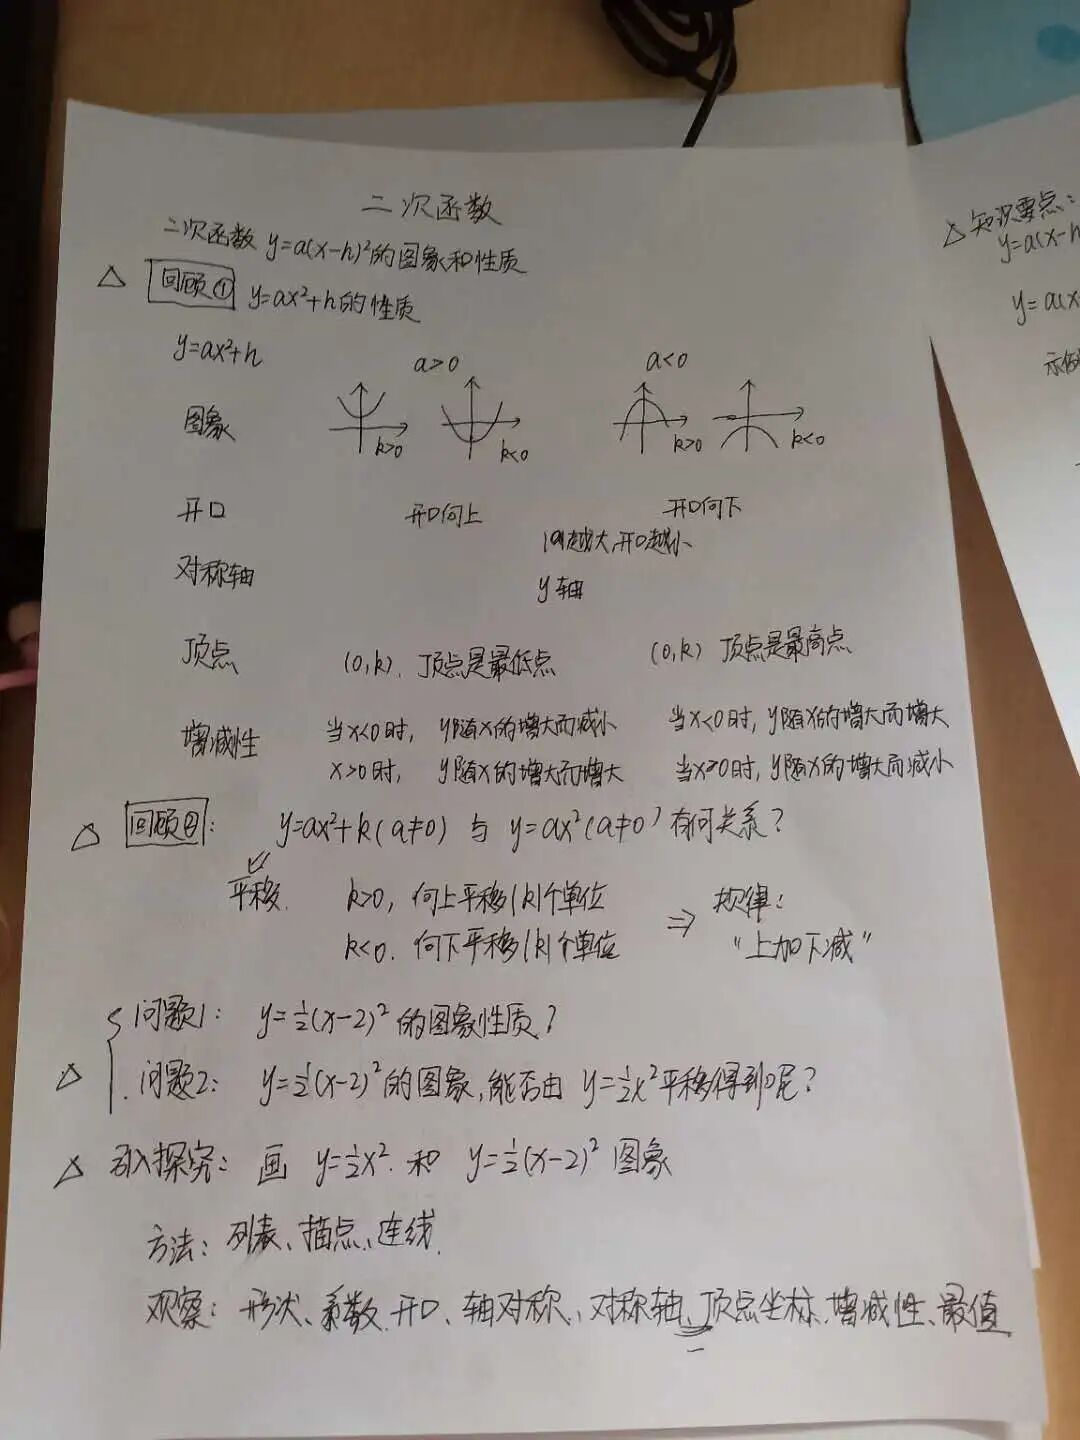 二次函数
二次函数 y=a(x-h)²的图象和性质
△ 回顾① y=ax²+h的性质
y=ax²+h a>0 a<0
图象 k>0 k<0 k>0 k<0
开口 开口向上 开口向下
|a|越大,开口越小
对称轴 y轴
顶点 (0,k). 顶点是最低点 (0,k) 顶点是最高点
增减性 当x<0时, y随x的增大而减小 当x<0时, y随x的增大而增大
x>0时, y随x的增大而增大 当x>0时, y随x的增大而减小
△ 回顾②: y=ax²+k(a≠0) 与 y=ax²(a≠0) 有何关系?
平移. k>0, 向上平移|k|个单位 ⇒ 规律:
k<0. 向下平移|k|个单位 "上加下减"
问题1: y=½(x-2)²的图象性质?
△ 问题2: y=½(x-2)²的图象,能否由 y=½x²平移得到呢?
△ 引入探究: 画 y=½x². 和 y=½(x-2)² 图象
方法: 列表、描点、连线.
观察: 形状、系数.开口、轴对称、对称轴、顶点坐标.增减性、最值
△ 知识要点:
y=a(x-h
y=a(x